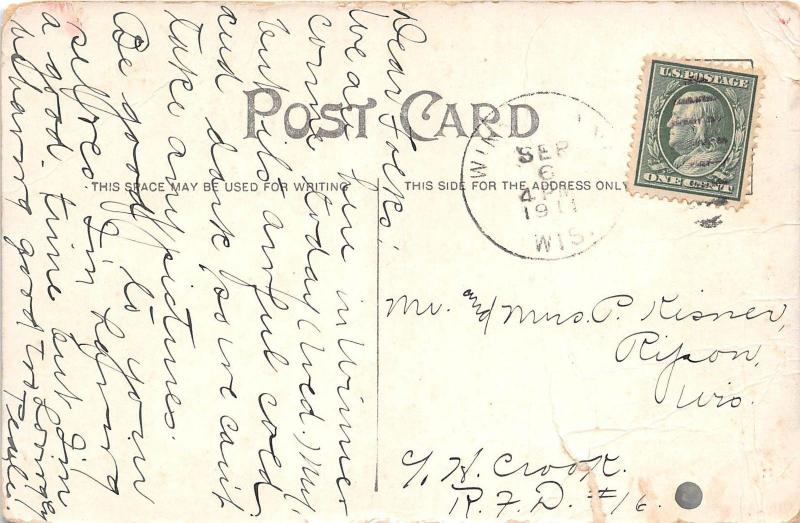 POST CARD
THIS SPACE MAY BE USED FOR WRITING
THIS SIDE FOR THE ADDRESS ONLY
U.S. POSTAGE
ONE CENT
WIN
SEP
6
4 PM
1911
WIS.
Dear Folks;
We are here in Winne
conne today (Wed.) My!
but its awful cold
and dark, so we can't
take any pictures.
Be good to your
self, Fred. I'm having
a good time but I'm
behaving good too
Mr. and Mrs. P. Kisner,
Ripon,
Wis.
C/ H. Crook.
R.F.D. #16.